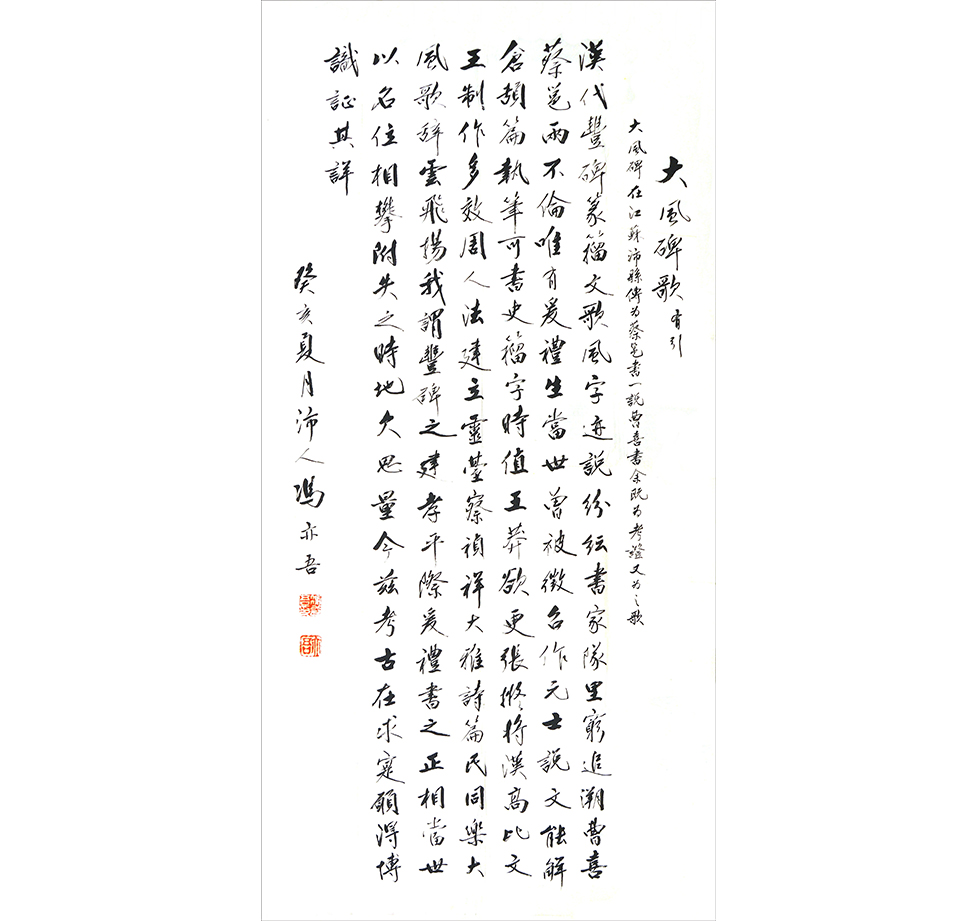 大風碑歌 有引
大風碑在江蘇沛縣傳為蔡邕書一說曹喜書余既為考證又為之歌
漢代豐碑篆籀文歌風字迹說紛紜書家隊里窮追溯曹喜
蔡邕兩不倫唯有爰禮生當世曾被徵召作元士說文能解
倉頡篇執筆可書史籀字時值王莽欲更張擬將漢高比文
王制作多效周人法建立靈臺察禎祥大雅詩篇民同樂大
風歌辭雲飛揚我謂豐碑之建孝平際爰禮書之正相當世
以名位相攀附失之時地欠思量今茲考古在求寔願得博
識証其詳
癸亥夏月沛人馮亦吾